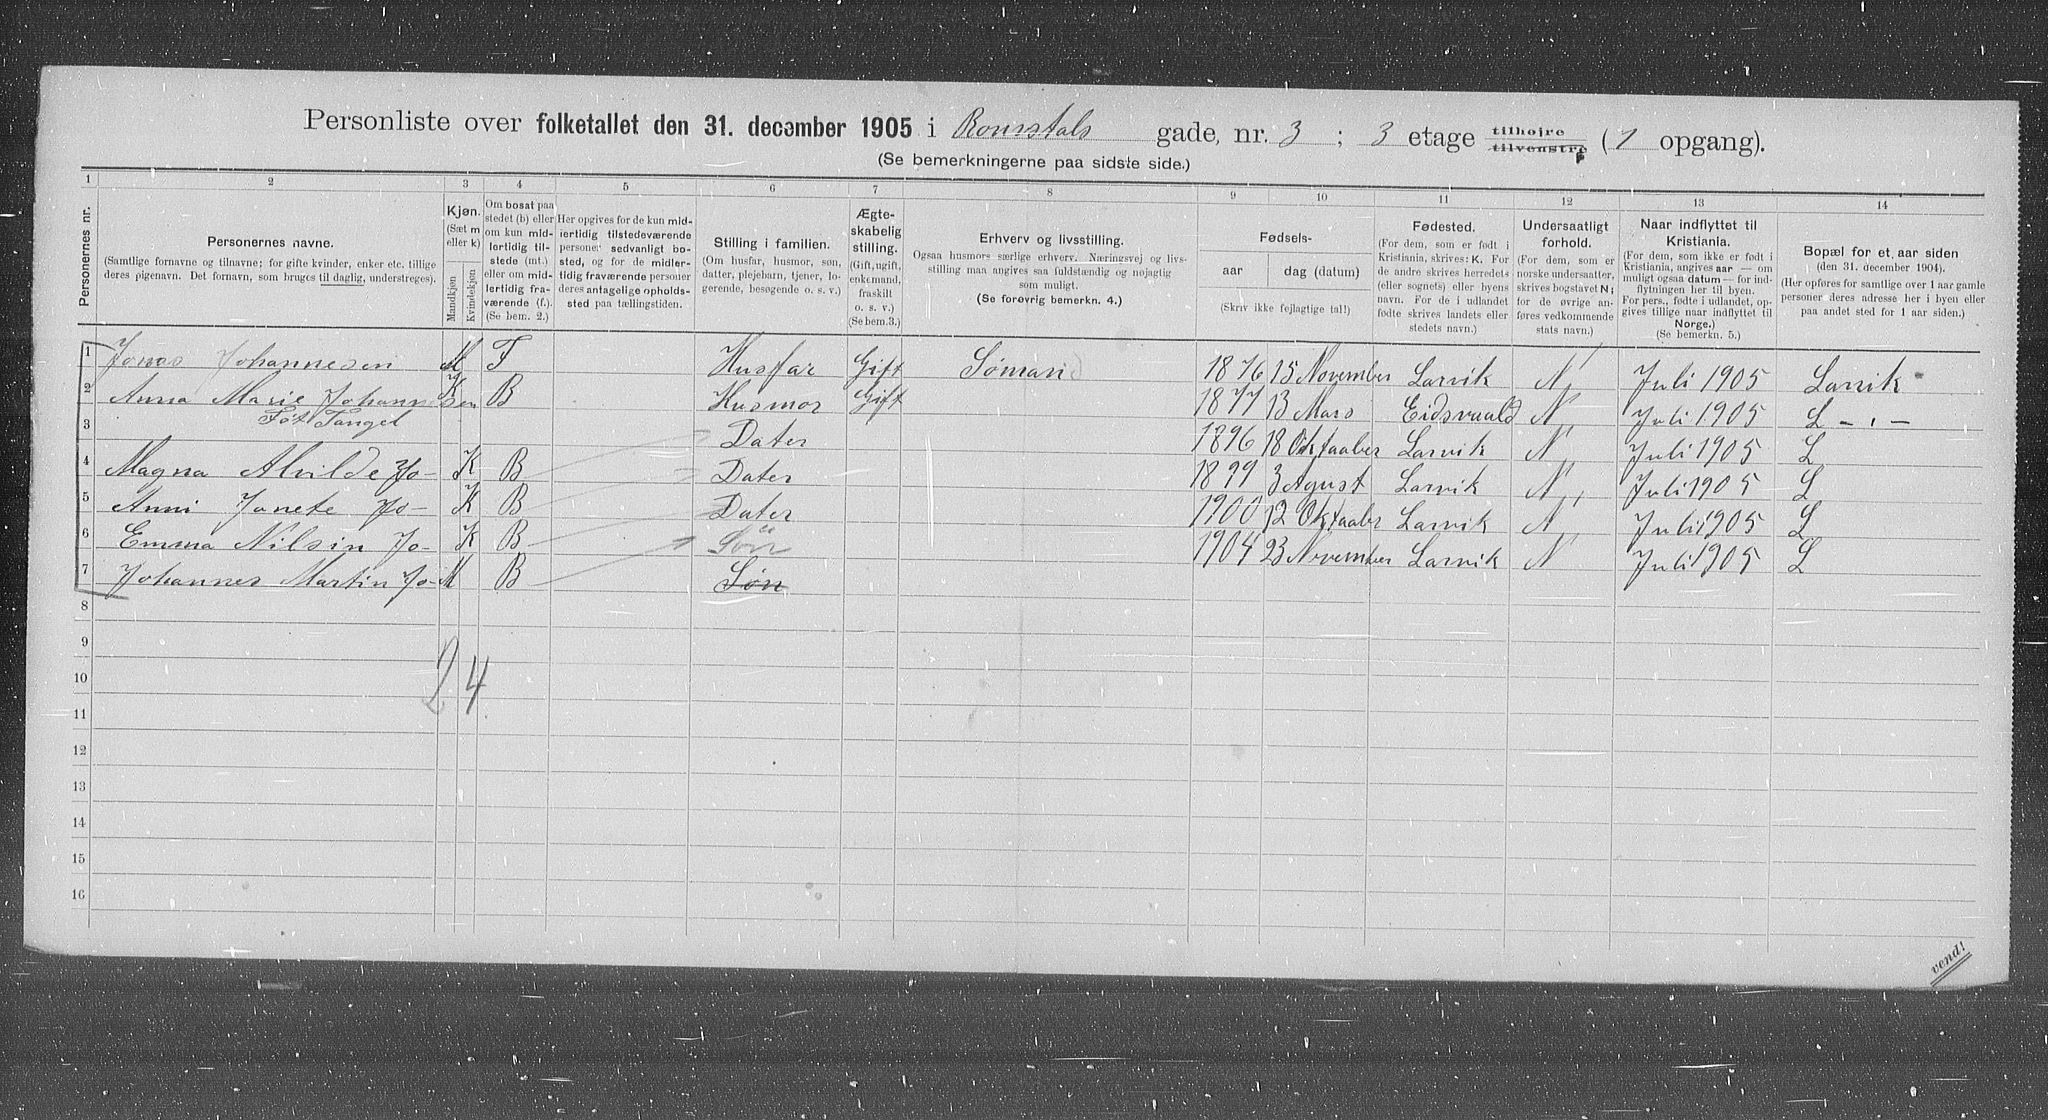 Personliste over folketallet den 31. december 1905 i Romsdals gade, nr. 3 ; 3 etage tilhøire tilvenstre (1 opgang).
(Se bemerkningerne paa sidste side.)
1 2 3 4 5 6 7 8 9 10 11 12 13 14
Personernes nr.
Personernes navne.
(Samtlige fornavne og tilnavne; for gifte kvinder, enker etc. tillige
deres pigenavn. Det fornavn, som bruges til daglig, understreges).
Kjøn.
(Sæt m
eller k)
Mandkjøn
Kvindekjøn
Om bosat paa
stedet (b) eller
om kun mid-
lertidig til-
stede (mt.)
eller om mid-
lertidig fra-
værende (f.).
(Se bem. 2.)
Her opgives for de kun mid-
lertidig tilstedeværende
personer sedvanligt bo-
sted, og for de midler-
tidig fraværende personer
deres antagelige opholds-
sted paa tællingstiden.
Stilling i familien.
(Om husfar, husmor, søn,
datter, plejebarn, tjener, lo-
gerende, besøgende o. s. v.)
Ægte-
skabelig
stilling.
(Gift, ugift,
enkemand,
fraskilt
o. s. v.)
(Se bem.3.)
Erhverv og livsstilling.
Ogsaa husmors særlige erhverv. Næringsvej og livs-
stilling maa angives saa fuldstændig og nøjagtig
som muligt.
(Se forøvrig bemerkn. 4.)
Fødsels-
aar dag (datum)
(Skriv ikke fejlagtige tal!)
Fødested.
(For dem, som er født i
Kristiania, skrives: K. For
de andre skrives herredets
(eller sognets) eller byens
navn. For de i udlandet
fødte skrives landets eller
stedets navn.)
Undersaatligt
forhold.
(For dem, som er
norske undersaatter,
skrives bogstavet N;
for de øvrige an-
føres vedkommende
stats navn.)
Naar indflyttet til
Kristiania.
(For dem, som ikke er født i
Kristiania, angives aar — om
muligt ogsaa datum — for ind-
flytningen her til byen.
For pers., fødte i udlandet, op-
gives tillige naar indflyttet til
Norge.)
(Se bemerkn. 5.)
Bopæl for et aar siden
(den 31. december 1904).
(Her opføres for samtlige over 1 aar gamle
personer deres adresse her i byen eller
paa andet sted for 1 aar siden.)
1 Jonas Johannesen M F Husfar Gift Sømand 1876 15 November Larvik N, Juli 1905 Larvik
2 Anna Marie Johannesen K B Husmor Gift 1877 13 Mars Eidsvaald N, Juli 1905 L - , -
Føt Tangel
3 Dater 1896 18 Oktaaber Larvik N, Juli 1905 L
4 Magna Alvilde Jo- K B Dater 1899 3 Agust Larvik N,, Juli 1905 L
5 Anni Janete Jo- K B Dater 1900 12 Oktaaber Larvik N, Juli 1905 L
6 Emma Nilsin Jo- K B Søn 1904 23 November Larvik N Juli 1905 L
7 Johannes Martin Jo- M B Søn
8
9
10
2 4
11
12
13
14
15
16
vend!